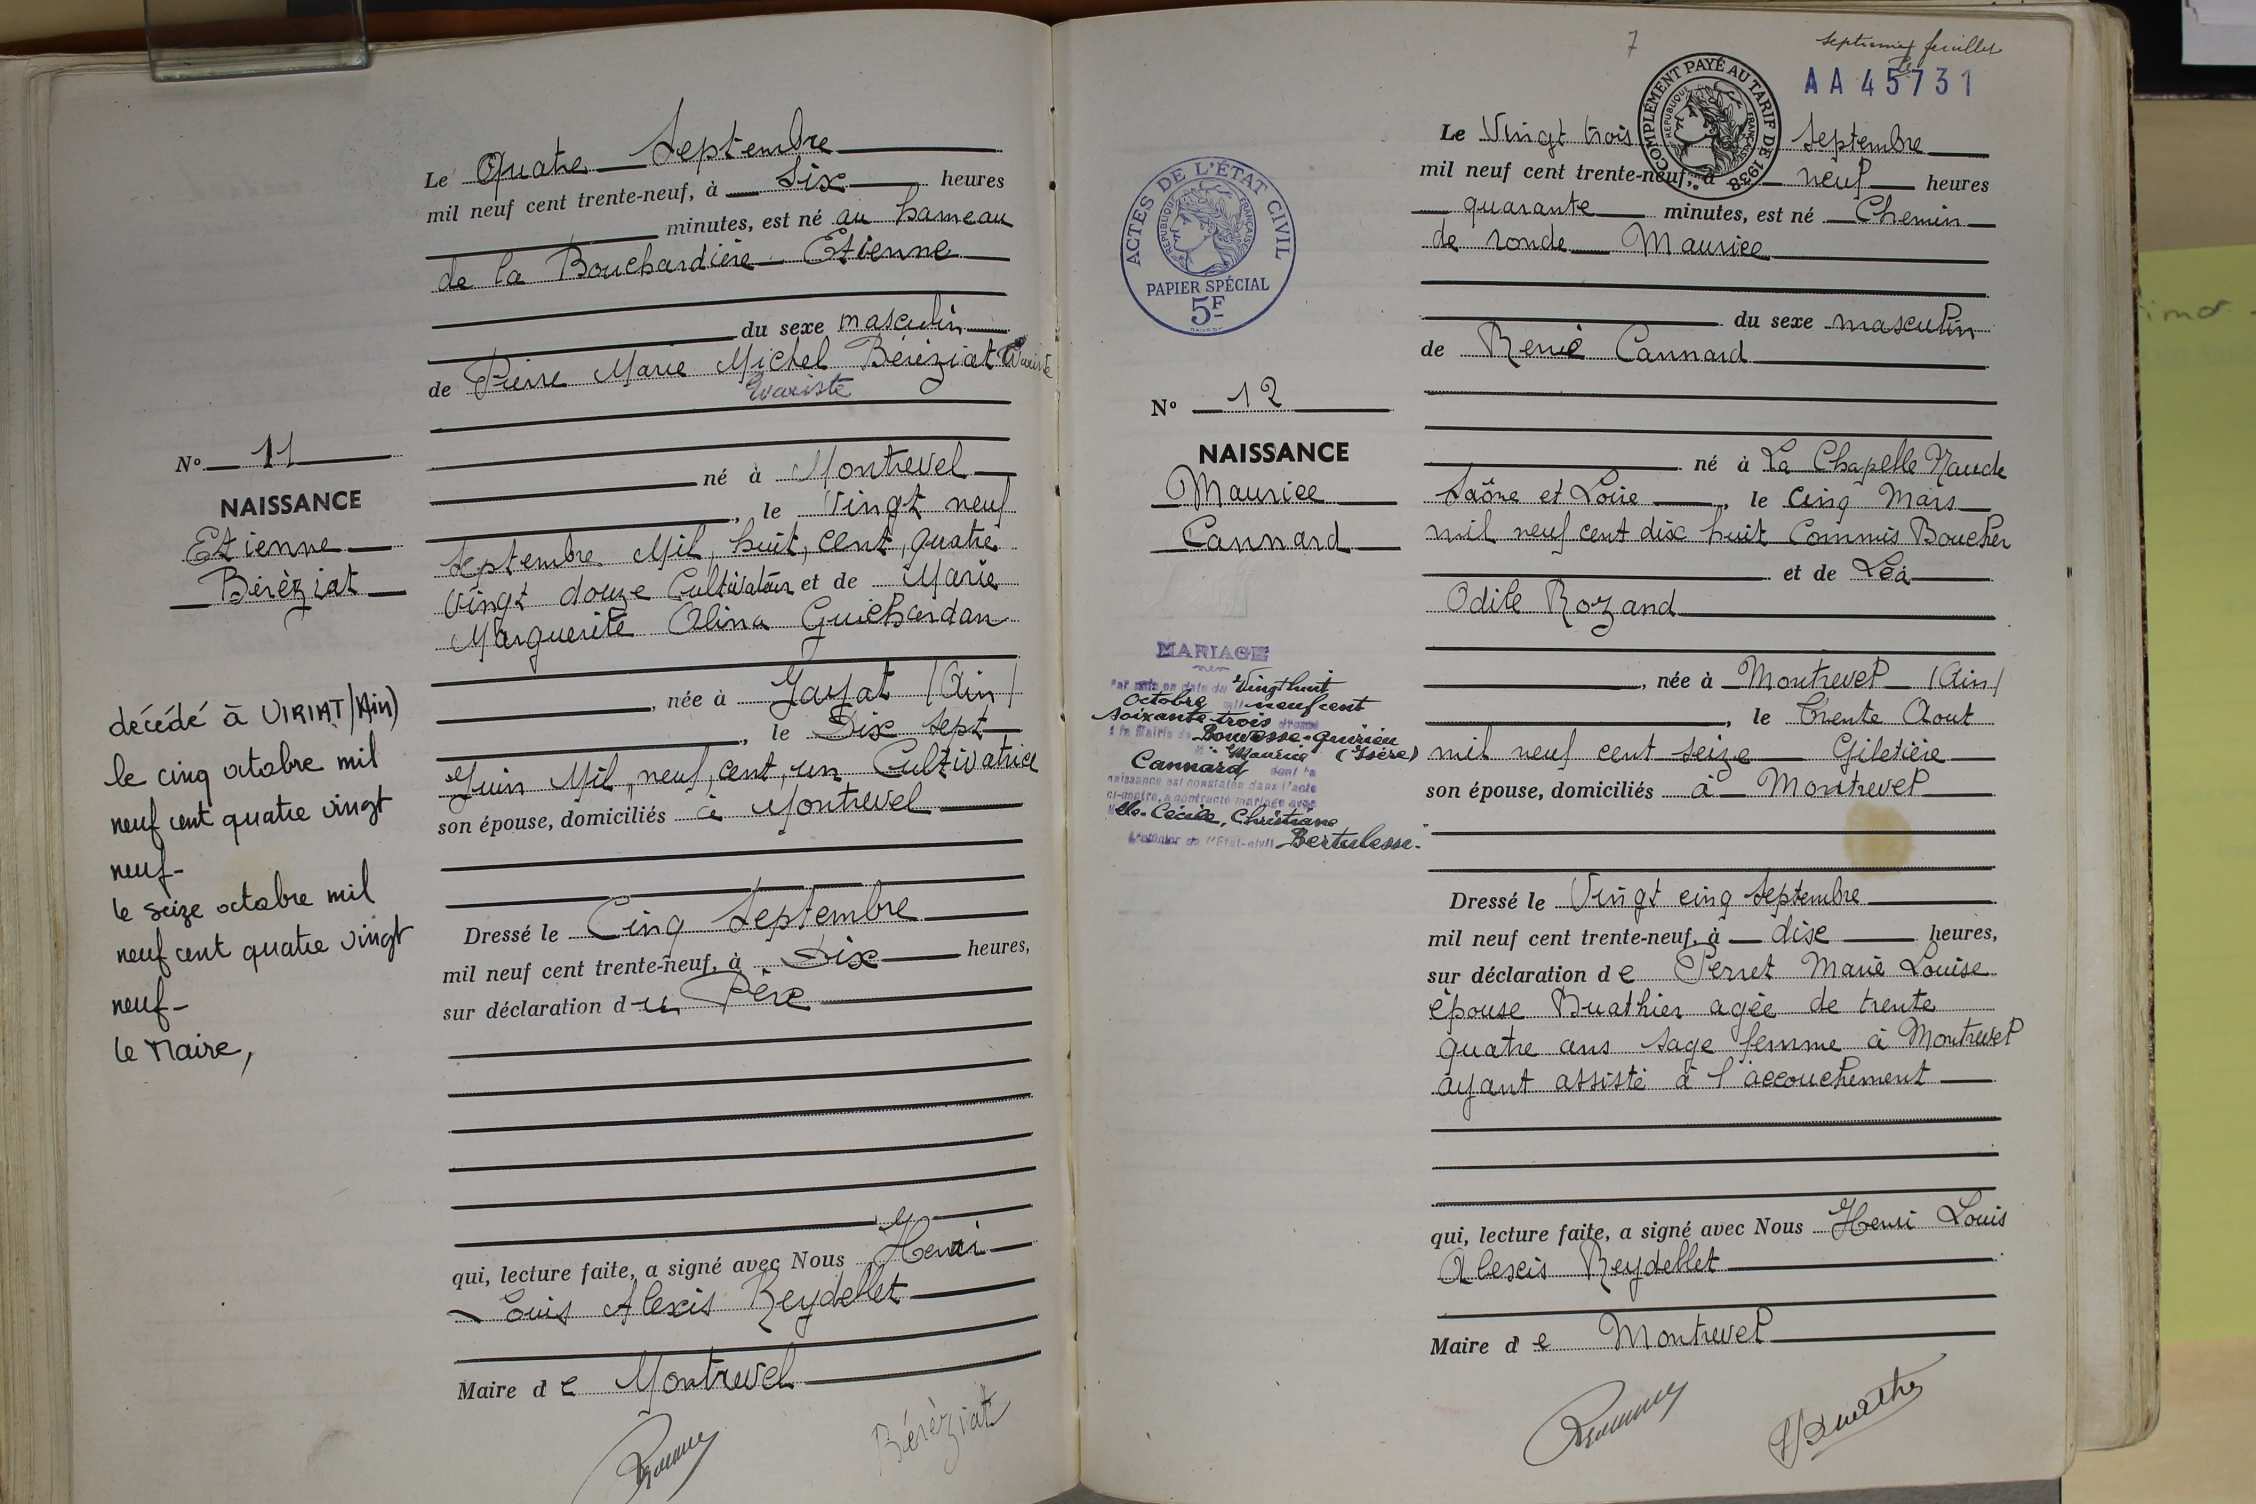 Le Quatre Septembre
mil neuf cent trente-neuf, à Six heures
minutes, est né au hameau
de la Bouchardière Etienne
du sexe masculin
de Pierre Marie Michel Béréziat Evariste
Evariste
né à Montrevel
, le Vingt neuf
Septembre Mil, huit, cent, quatre
Vingt douze Cultivateur et de Marie
Marguerite Alina Guichardan
, née à Jayat (Ain)
, le Dix Sept
Juin Mil, neuf, cent, un Cultivatrice
son épouse, domiciliés à Montrevel
Dressé le Cinq Septembre
mil neuf cent trente-neuf, à Dix heures,
sur déclaration du Père
qui, lecture faite, a signé avec Nous Henri
Louis Alexis Reydellet
Maire de Montrevel
Béréziat
No 11
NAISSANCE
Etienne
Béréziat
décédé à VIRIAT (Ain)
le cinq octobre mil
neuf cent quatre vingt
neuf-
le seize octobre mil
neuf cent quatre vingt
neuf-
le Maire,
7
septième feuillet
AA 45731
COMPLÉMENT PAYÉ AU TARIF DE 1938
REPUBLIQUE FRANÇAISE
ACTES DE L'ÉTAT CIVIL
REPUBLIQUE FRANÇAISE
PAPIER SPÉCIAL
5F
No 12
NAISSANCE
Maurice
Cannard
MARIAGE
Par acte en date du Vingt huit
Octobre mil neuf cent
soixante trois dressé
à la Mairie de Bouvesse-Quirieu
Mr Maurice (Isère)
Cannard dont la
naissance est constatée dans l'acte
ci-contre, a contracté mariage avec
Mlle Cécile, Christiane
L'officier de l'Etat-civil Bertulesse.
Le Vingt trois Septembre
mil neuf cent trente-neuf, à neuf heures
quarante minutes, est né Chemin
de ronde Maurice
du sexe masculin
de René Cannard
né à La Chapelle Naude
Saône et Loire, le cinq Mars
mil neuf cent dix huit Commis Boucher
et de Léa
Odile Rozand
, née à Montrevel (Ain)
, le trente Aout
mil neuf cent seize Giletière
son épouse, domiciliés à Montrevel
Dressé le Vingt cinq Septembre
mil neuf cent trente-neuf, à dix heures,
sur déclaration de Perret Marie Louise
épouse Buathier agée de trente
quatre ans sage femme à Montrevel
ayant assisté à l'accouchement
qui, lecture faite, a signé avec Nous Henri Louis
Alexis Reydellet
Maire de Montrevel